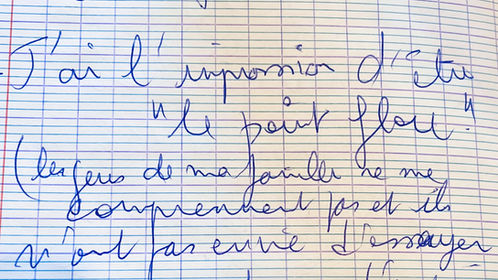 - J'ai l'impression d'être
"le point flou."
(les gens de ma famille ne me
comprennent pas et ils
n'ont pas envie d'essayer